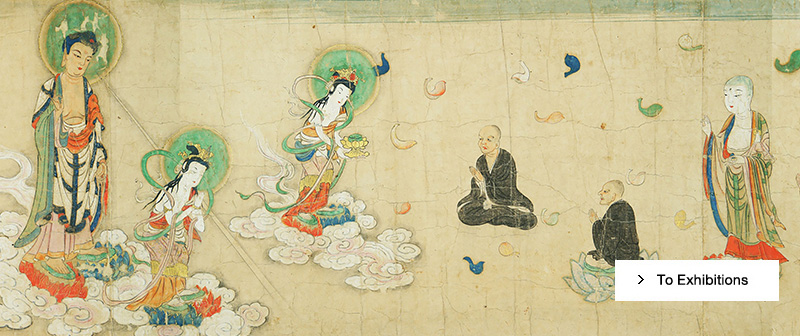 To Exhibitions